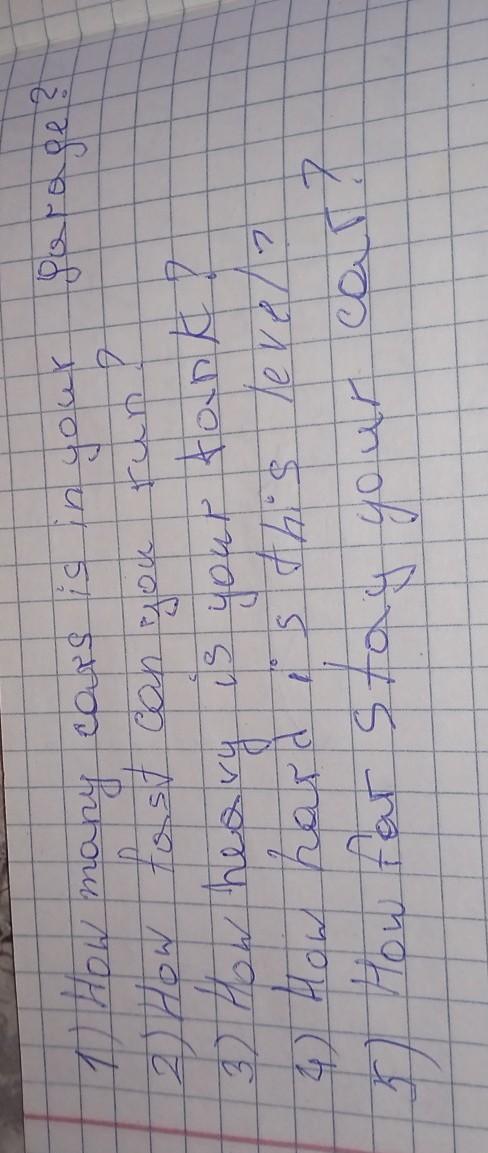 1) How many cars is in your garage?
2) How fast can you run?
3) How heavy is your tank?
4) How hard is this level?
5) How far stay your car?